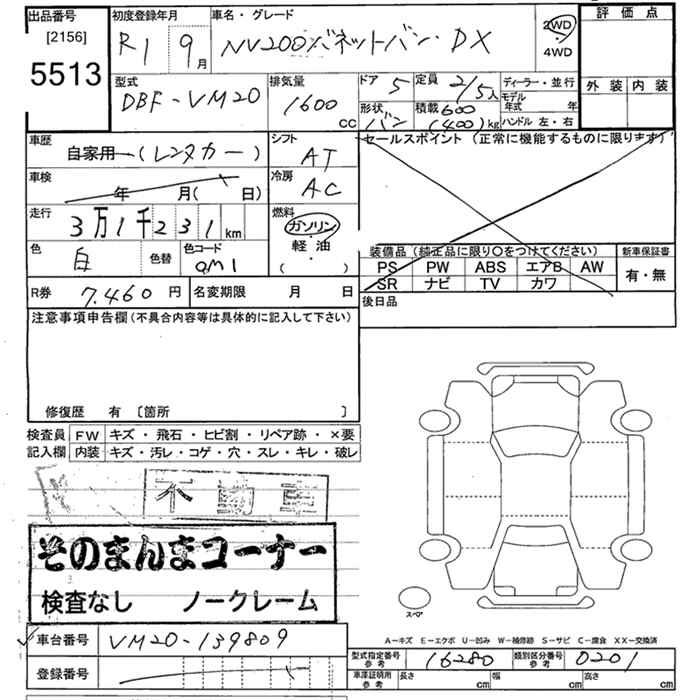 出品番号 初度登録年月 車名・グレード 評価点
[2156] R1 9月 NV200バネットバン・DX 2WD・4WD
5513
型式 排気量 ドア 5 定員 2/5人 ディーラー・並行 外装 内装
DBF-VM20 1600CC 形状 バン 積載 600(400)kg モデル年式 年
ハンドル 左・右
車歴 シフト セールスポイント(正常に機能するものに限ります)
自家用-(レンタカー) AT
車検 冷房
年 月(日) AC
走行 燃料
3万1千231km ガソリン・軽油
色 白 色替 色コード QM1 ( ・ )
装備品(純正品に限り〇をつけてください) 新車保証書
PS PW ABS エアB AW 有・無
SR ナビ TV カワ
R券 7.460円 名変期限 月 日 後日品
注意事項申告欄(不具合内容等は具体的に記入して下さい)
修復歴 有 [箇所 ]
検査員 FW キズ・飛石・ヒビ割・リペア跡・×要
記入欄 内装 キズ・汚レ・コゲ・穴・スレ・キレ・破レ
不動車
そのまんまコーナー
検査なし ノークレーム
スペア
A-キズ E-エクボ U-凹み W-補修跡 S-サビ C-腐食 XX-交換済
車台番号 VM20-139809
型式指定番号 参考 16280 類別区分番号 参考 0201
登録番号
車庫証明用 参考 長さ cm 幅 cm 高さ cm